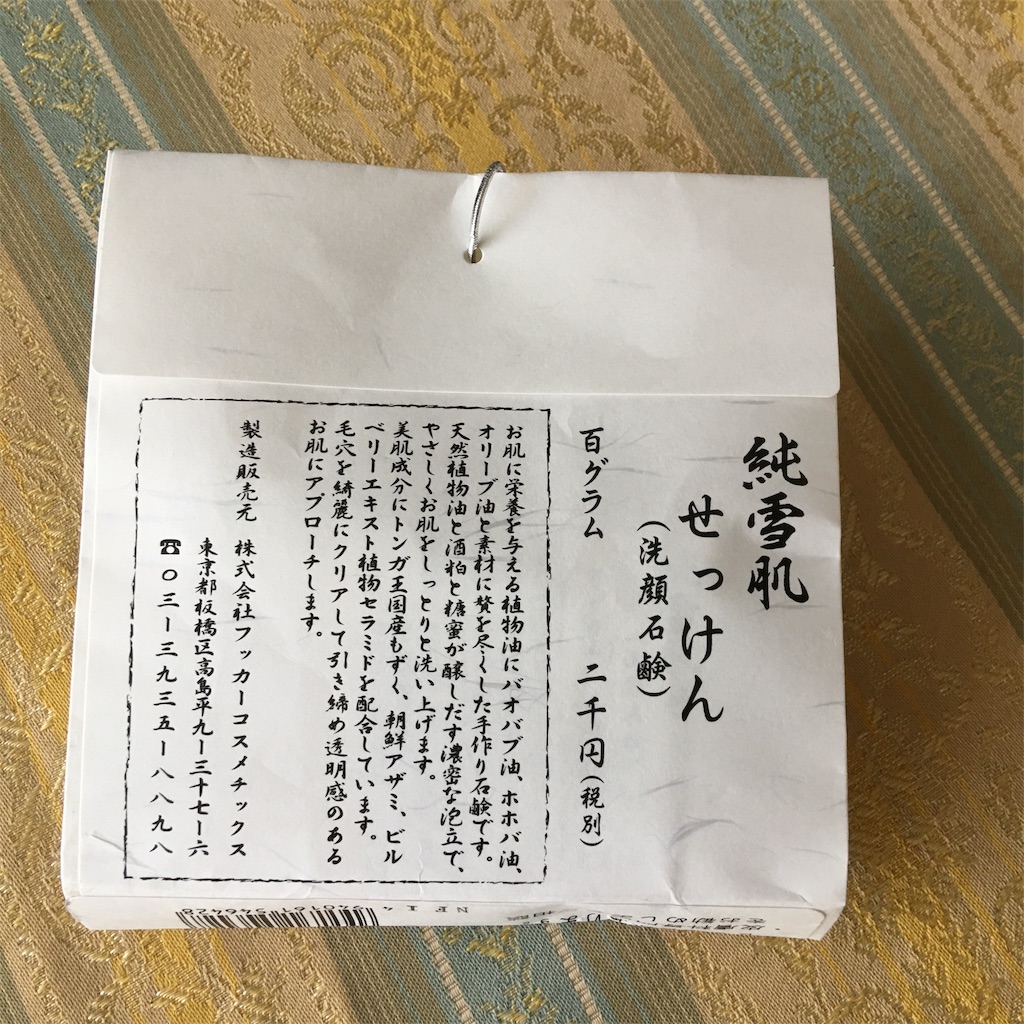 純雪肌
せっけん
(洗顔石鹸)
百グラム 二千円(税別)
お肌に栄養を与える植物油にバオバブ油、ホホバ油、
オリーブ油と素材に贅を尽くした手作り石鹸です。
天然植物油と酒粕と糖蜜が醸しだす濃密な泡立で、
やさしくお肌をしっとりと洗い上げます。
美肌成分にトンガ王国産もずく、朝鮮アザミ、ビル
ベリーエキスト植物セラミドを配合しています。
毛穴を綺麗にクリアして引き締め透明感のある
お肌にアプローチします。
製造販売元 株式会社フッカーコスメチックス
東京都板橋区高島平九ー三十七ー六
☎〇三ー三九三五ー八八九八